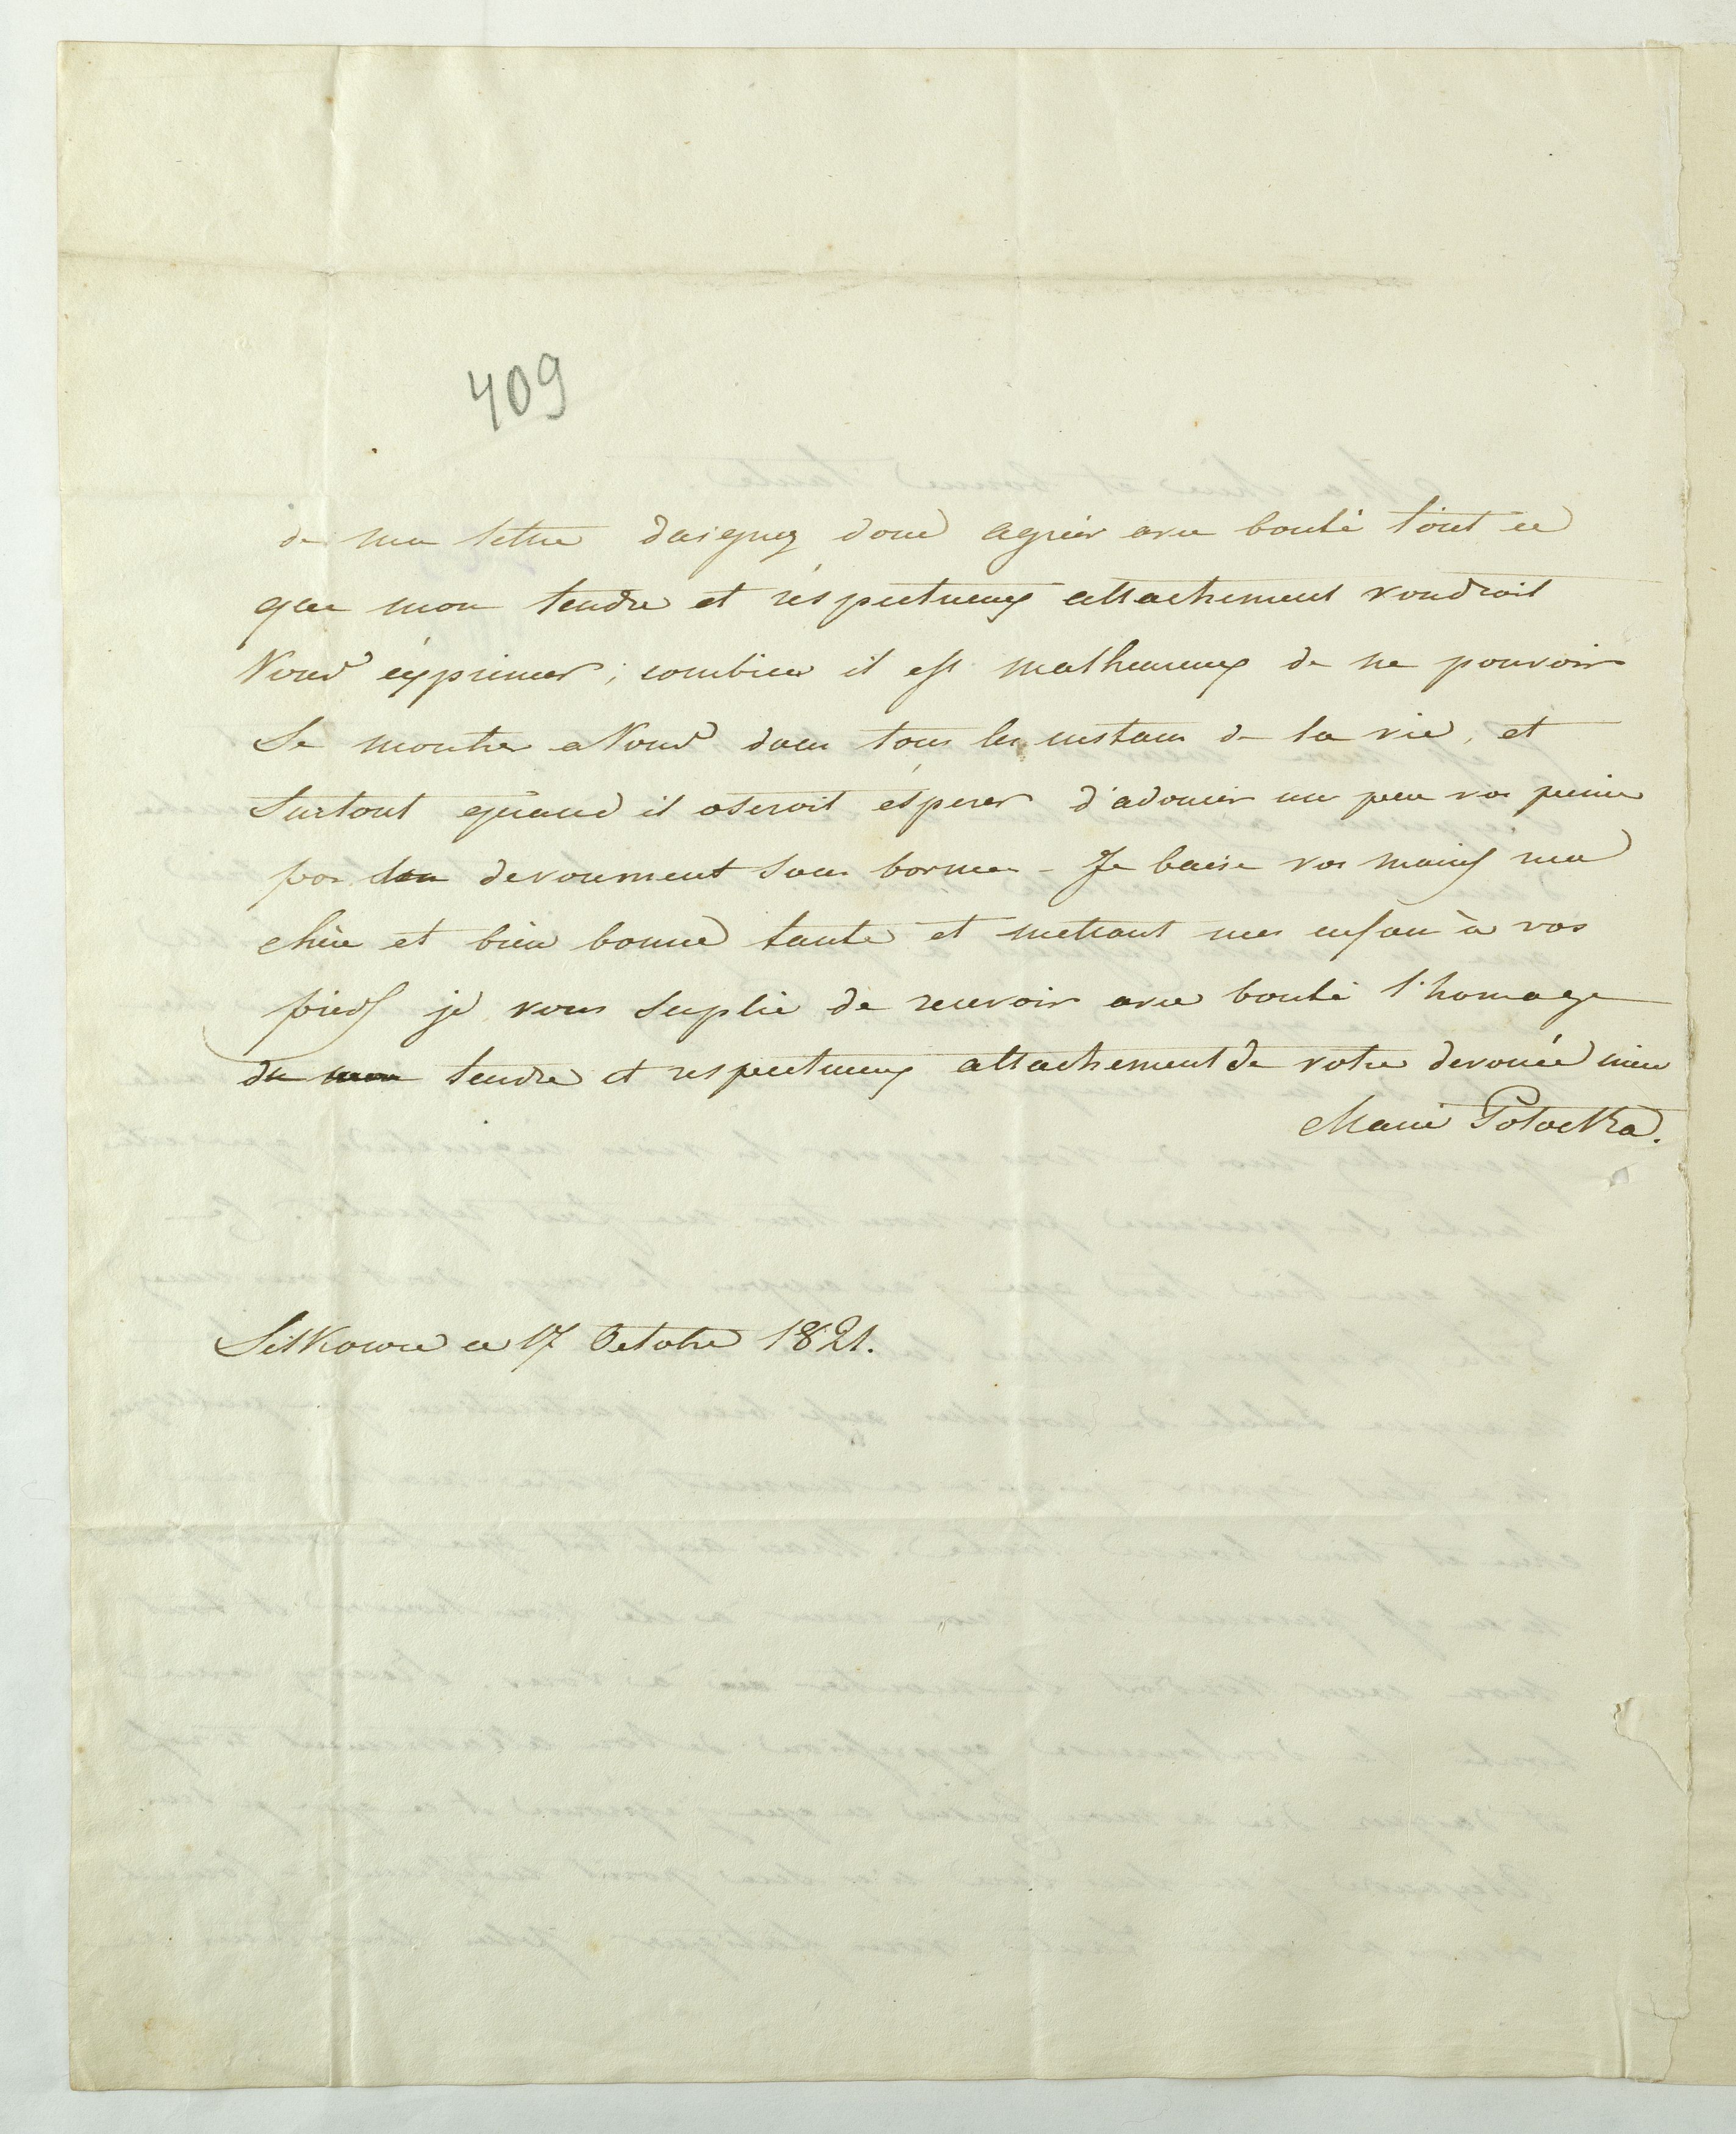 409
de ma lettre daignez donc agréer avec bonté tout ce
que mon tendre et réspectueux attachement voudroit
Vous éxprimer; combien il est malheureux de ne pouvoir
Se montrer a Vous dans tous les instans de la vie, et
Surtout quand il oseroit ésperer d'adoucir un peu vos peines
par son devoument sans bornes - Je baise vos mains ma
chère et bien bonne tante et mettant mes enfans à vos
pieds je vous suplie de recevoir avec bonté l'homage
du mon tendre et respectueux attachement de votre devouée niece
Marie Potocka.
Sitkowce ce 17 Octobre 1821.